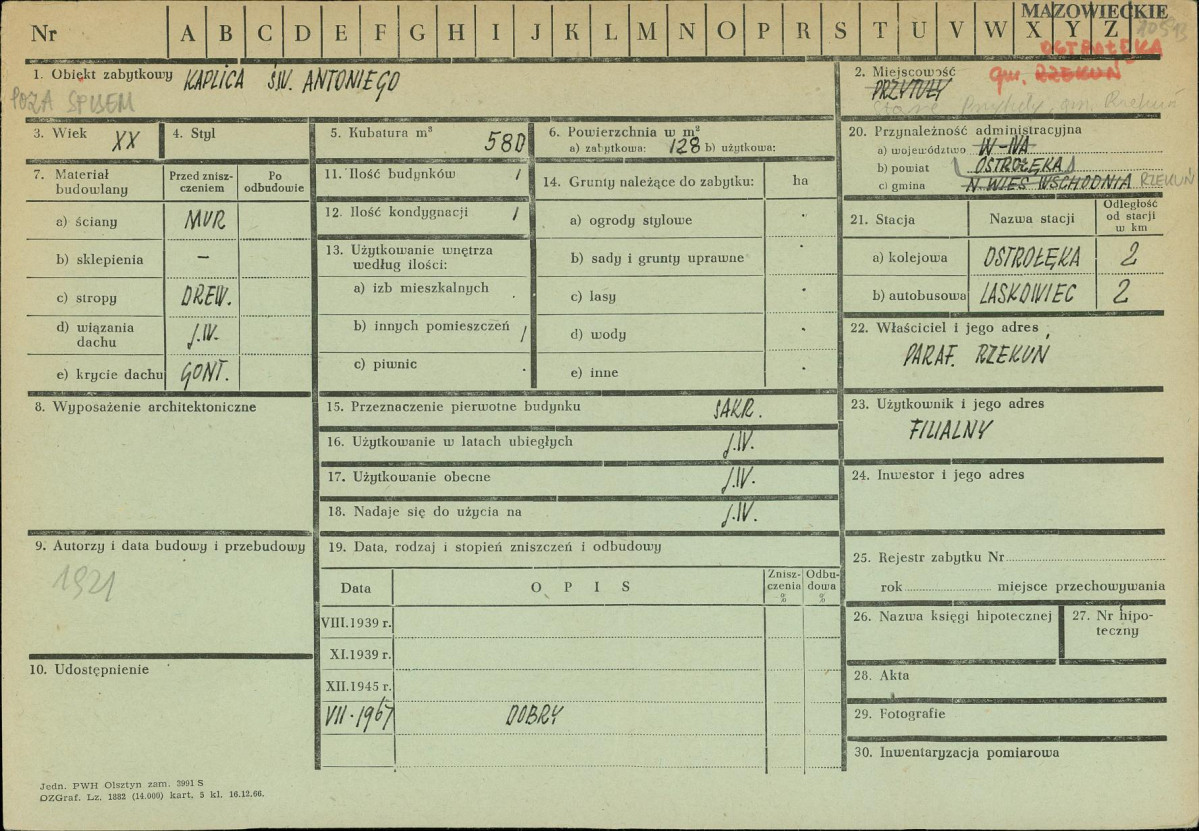 MAZOWIECKIE
Nr A B C D E F G H I J K L M N O P R S T U V W X Y Z
OSTROŁĘKA
1. Obiekt zabytkowy KAPLICA ŚW. ANTONIEGO
POZA SPISEM
2. Miejscowość gm. RZEKUŃ
PRZYTUŁY
Stare Przytuły, gm. Rzekuń
3. Wiek XX
4. Styl
5. Kubatura m³ 580
6. Powierzchnia w m²
a) zabytkowa: 128 b) użytkowa:
7. Materiał budowlany
Przed zniszczeniem
Po odbudowie
a) ściany MUR
b) sklepienia —
c) stropy DREW.
d) wiązania dachu J.W.
e) krycie dachu GONT.
8. Wyposażenie architektoniczne
9. Autorzy i data budowy i przebudowy
1921
10. Udostępnienie
11. Ilość budynków 1
12. Ilość kondygnacji 1
13. Użytkowanie wnętrza według ilości:
a) izb mieszkalnych .
b) innych pomieszczeń 1
c) piwnic .
14. Grunty należące do zabytku: ha
a) ogrody stylowe
b) sady i grunty uprawne
c) lasy
d) wody
e) inne
15. Przeznaczenie pierwotne budynku SAKR.
16. Użytkowanie w latach ubiegłych J.W.
17. Użytkowanie obecne J.W.
18. Nadaje się do użycia na J.W.
19. Data, rodzaj i stopień zniszczeń i odbudowy
Data OPIS Zniszczenia % Odbudowa %
VIII.1939 r.
XI.1939 r.
XII.1945 r.
VII.1967 DOBRY
20. Przynależność administracyjna
a) województwo W-NA
b) powiat OSTROŁĘKA
c) gmina N. WIEŚ WSCHODNIA RZEKUŃ
21. Stacja Nazwa stacji Odległość od stacji w km
a) kolejowa OSTROŁĘKA 2
b) autobusowa LASKOWIEC 2
22. Właściciel i jego adres
PARAF. RZEKUŃ
23. Użytkownik i jego adres
FILIALNY
24. Inwestor i jego adres
25. Rejestr zabytku Nr
rok miejsce przechowywania
26. Nazwa księgi hipotecznej
27. Nr hipoteczny
28. Akta
29. Fotografie
30. Inwentaryzacja pomiarowa
Jedn. PWH Olsztyn zam. 3991 S
OZGraf. Lz. 1882 (14.000) kart. 5 kl. 16.12.66.